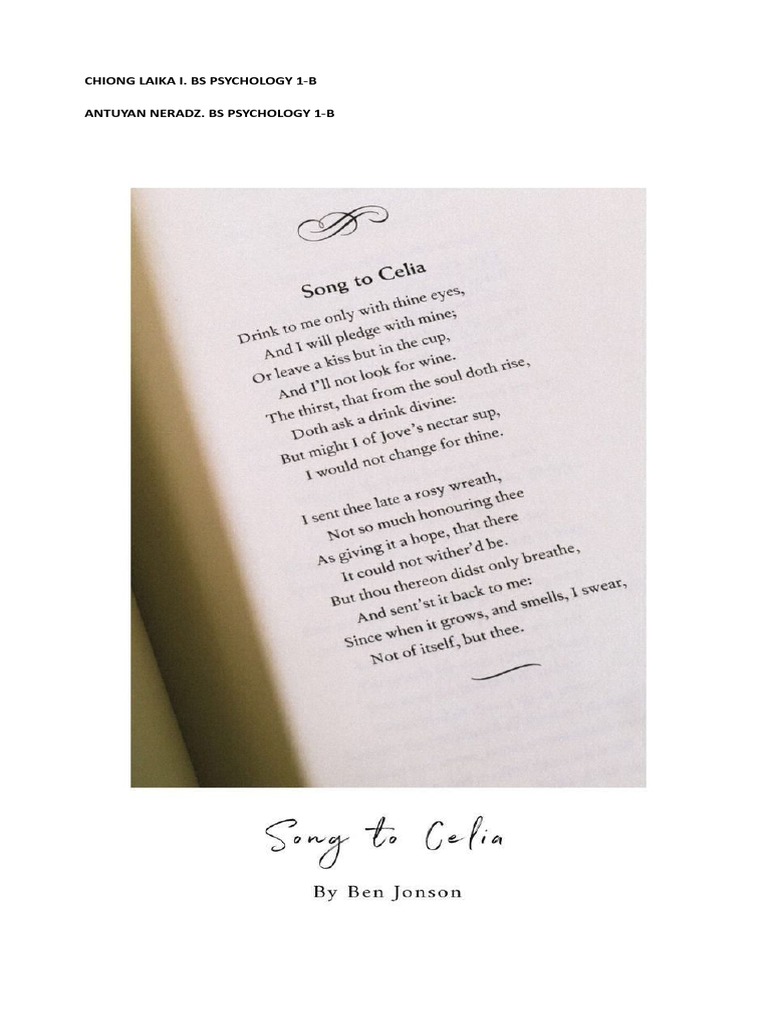 CHIONG LAIKA I. BS PSYCHOLOGY 1-B
ANTUYAN NERADZ. BS PSYCHOLOGY 1-B
Song to Celia
Drink to me only with thine eyes,
And I will pledge with mine;
Or leave a kiss but in the cup,
And I'll not look for wine.
The thirst, that from the soul doth rise,
Doth ask a drink divine:
But might I of Jove's nectar sup,
I would not change for thine.
I sent thee late a rosy wreath,
Not so much honouring thee
As giving it a hope, that there
It could not wither'd be.
But thou thereon didst only breathe,
And sent'st it back to me:
Since when it grows, and smells, I swear,
Not of itself, but thee.
Song to Celia
By Ben Jonson